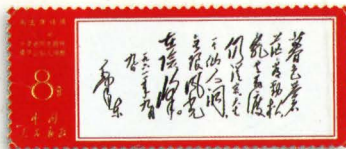 毛主席诗词
8分
中国
人民邮政
暮色苍
茫看劲松
乱云飞渡
仍从容天生
一个仙人洞
无限风光
在险峰
一九六一年九月
九日
毛泽东